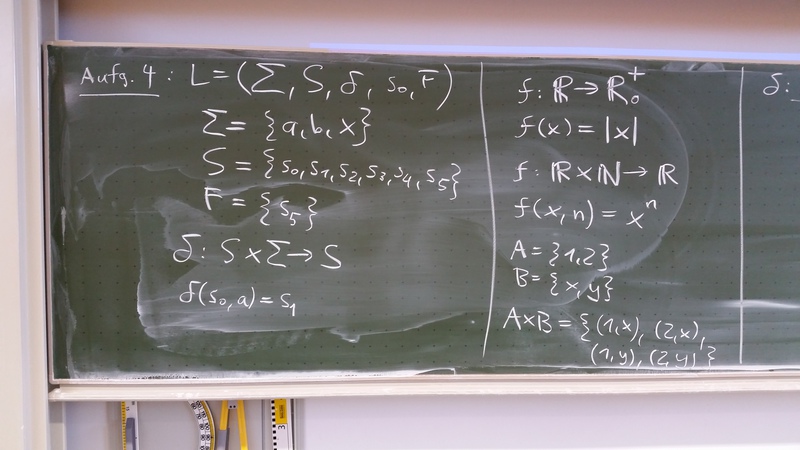 Aufg. 4 : L = (Σ, S, δ, s₀, F)
Σ = {a, b, x}
S = {s₀, s₁, s₂, s₃, s₄, s₅}
F = {s₅}
δ : S × Σ → S
δ(s₀, a) = s₁
f : ℝ → ℝ₀⁺
f(x) = |x|
f : ℝ × ℕ → ℝ
f(x, n) = xⁿ
A = {1, 2}
B = {x, y}
A×B = {(1, x), (2, x),
(1, y), (2, y)}
δ :